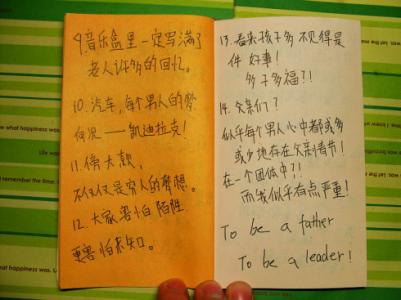 9.音乐盒里一定写满了
老人许多的回忆。
10. 汽车,每个男人的梦
何况——凯迪拉克!
11.傍大款,
不仅仅是穷人的梦想。
12. 大家害怕陌生
更害怕未知。
13. 看来孩子多 不见得是
件 好事!
多子多福?!
14. 父亲们?
似乎每个男人心中都或多
或少地存在父亲情节!
在一个团体中?!
而我似乎有点严重!
To be a father
To be a leader!